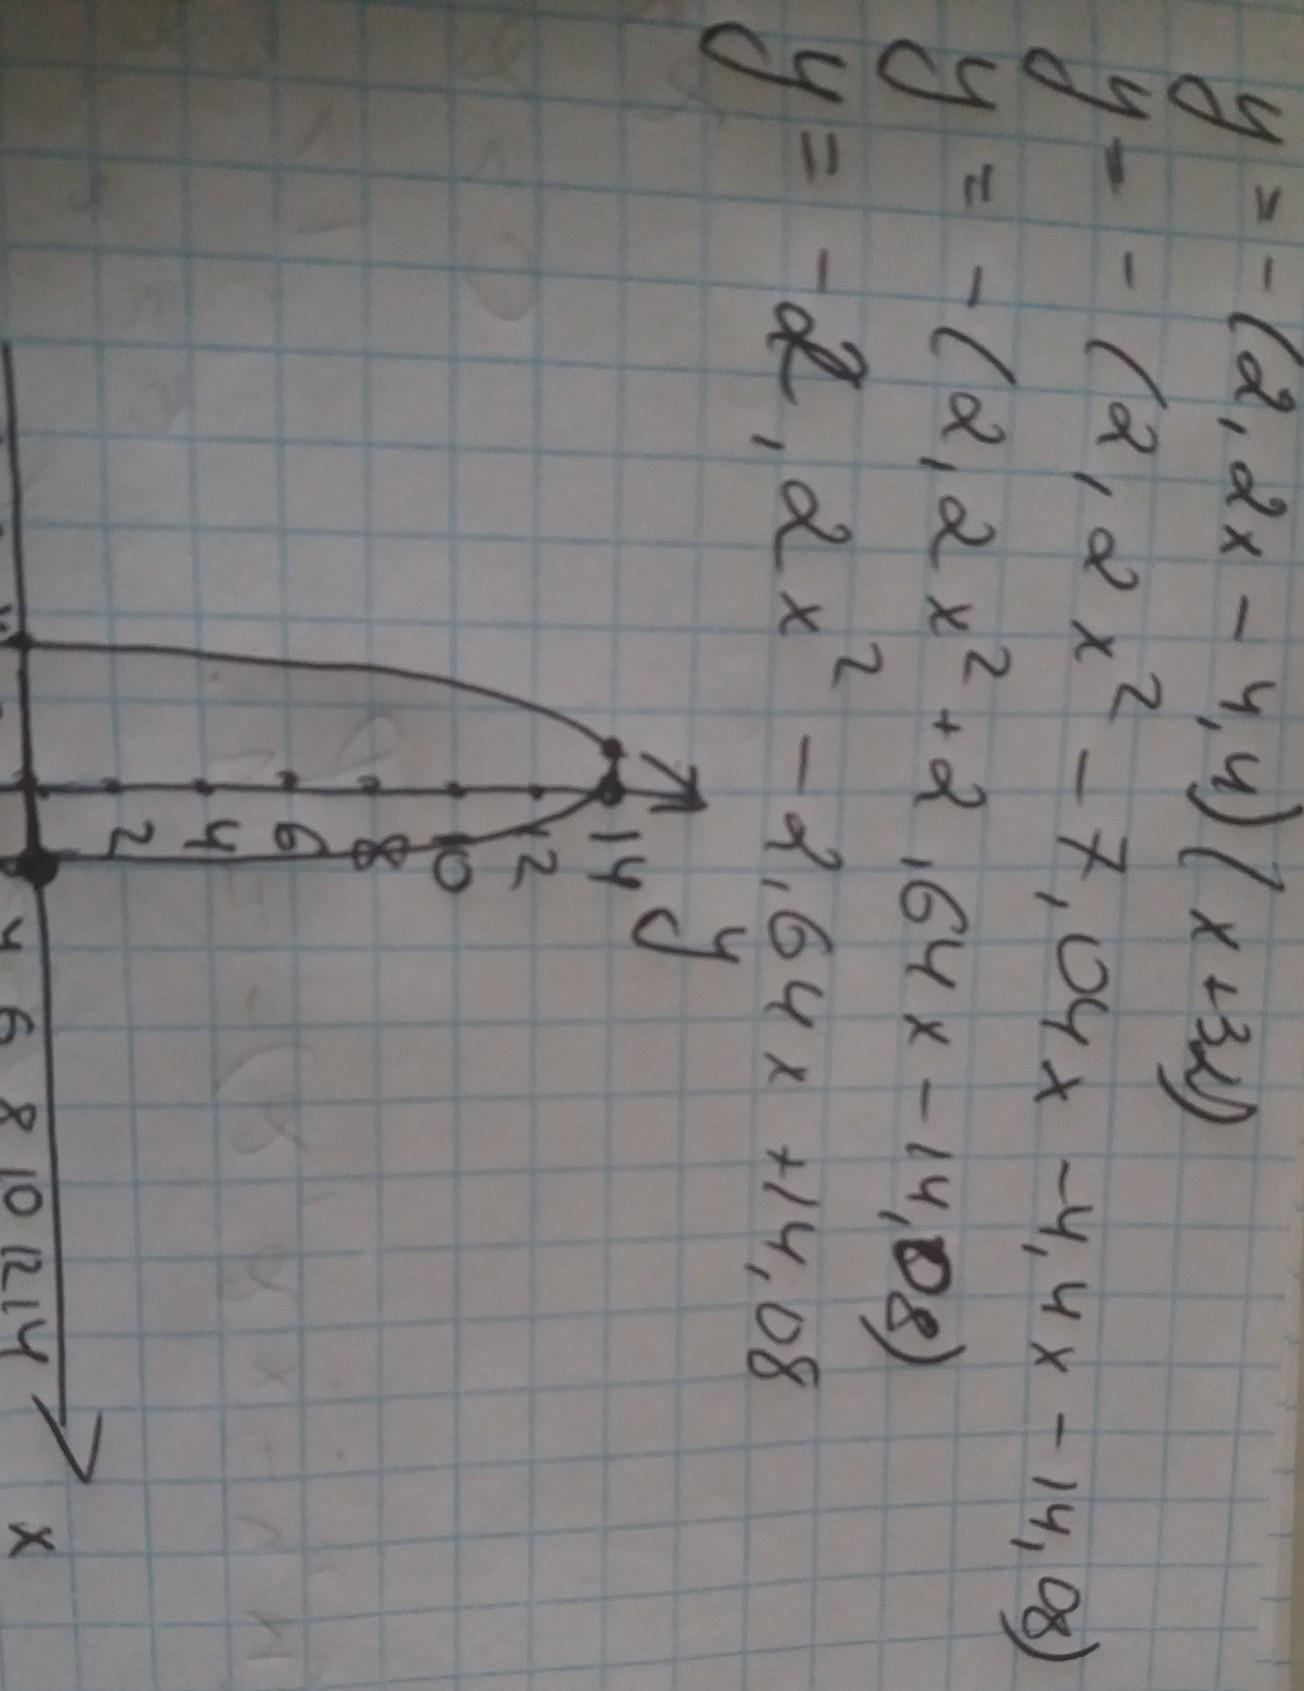 y = -(2,2x - 4,4)(x+3,2)
y = -(2,2x² - 7,04x - 4,4x - 14,08)
y = -(2,2x² + 2,64x - 14,08)
y = -2,2x² - 2,64x + 14,08
y
14
12
10
8
6
4
2
4 6 8 10 12 14 x